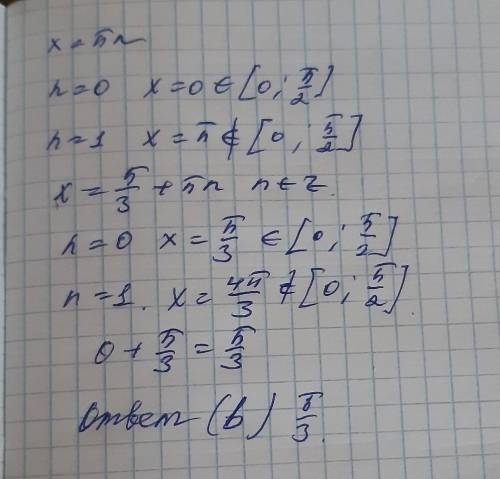 x = πn
n=0 x=0 ∈ [0; π/2]
n=1 x=π ∉ [0; π/2]
x = π/3 + πn n ∈ Z.
n=0 x = π/3 ∈ [0; π/2]
n=1. x = 4π/3 ∉ [0; π/2]
0 + π/3 = π/3
Ответ (b) π/3.